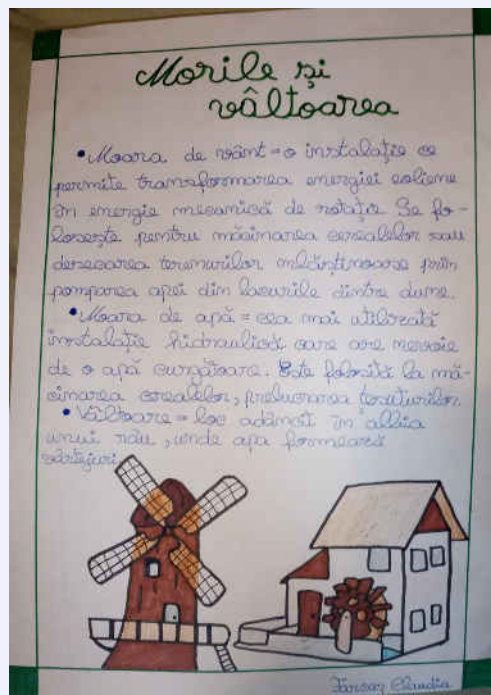 Morile și
vâltoarea
• Moara de vânt = o instalație ce
permite transformarea energiei eoliene
în energie mecanică de rotație. Se fo-
losește pentru măcinarea cerealelor sau
desecarea terenurilor mlăștinoase prin
pomparea apei din lacurile dintre dune.
• Moara de apă = cea mai utilizată
instalație hidraulică care are nevoie
de o apă curgătoare. Este folosită la mă-
cinarea cerealelor, prelucrarea țesuturilor.
• Vâltoare = loc adâncit în albia
unui râu, unde apa formează
vârtejuri
Claudia